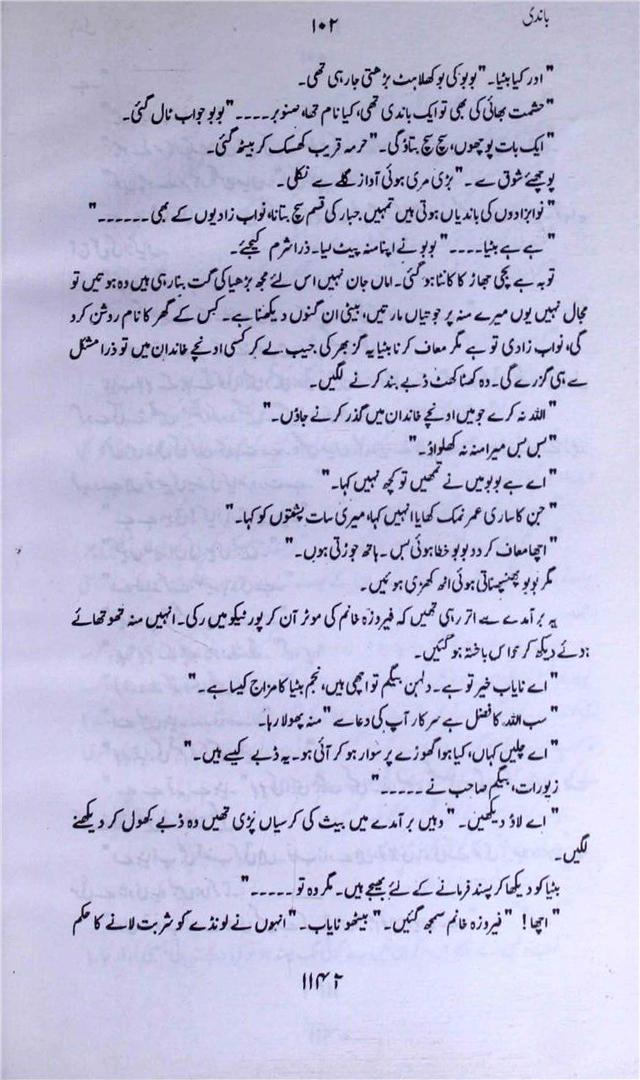 باندی
۱۰۲
"اور کیا بٹیا۔" بوبو کی بوکھلاہٹ بڑھتی جا رہی تھی۔
"حشمت بھائی کی بھی تو ایک باندی تھی، کیا نام تھا، صنوبر۔۔۔۔" بوبو جواب ٹال گئی۔
"ایک بات پوچھوں، سچ سچ بتاؤ گی۔" حرمہ قریب کھسک کر بیٹھ گئی۔
پوچھئے شوق سے۔" بڑی مری ہوئی آواز گلے سے نکلی۔
"نوابزادوں کی باندیاں ہوتی ہیں تمہیں جبار کی قسم سچ بتانا، نواب زادیوں کے بھی۔۔۔۔۔۔"
"ہے ہے بٹیا۔۔۔۔" بوبو نے اپنا منہ پیٹ لیا۔ ذرا شرم کیجئے۔
توبہ ہے بچی جھاڑ کا کانٹا ہو گئی۔ اماں جان نہیں اس لئے مجھ بڑھیا کی گت بنا رہی ہیں وہ ہوتیں تو
مجال نہیں یوں میرے منہ پر جوتیاں مارتیں، بیٹی ان گنوں دیکھنا ہے۔ کس کے گھر کا نام روشن کرو
گی، نواب زادی تو ہے مگر معاف کرنا بٹیا یہ گز بھر کی جیب لے کر کسی اونچے خاندان میں تو ذرا مشکل
سے ہی گزرے گی۔ وہ کھٹا کھٹ ڈبے بند کرنے لگیں۔
"اللہ نہ کرے جو میں اونچے خاندان میں گذر کرنے جاؤں۔"
"بس بس میرا منہ نہ کھلواؤ۔"
"اے ہے بوبو میں نے تمھیں تو کچھ نہیں کہا۔"
"جن کا ساری عمر نمک کھایا انہیں کہا، میری سات پشتوں کو کہا۔"
"اچھا معاف کر دو بوبو خطا ہوئی بس۔ ہاتھ جوڑتی ہوں۔"
مگر بوبو پھنپھناتی ہوئی اٹھ کھڑی ہوئیں۔
یہ برآمدے سے اتر رہی تھیں کہ فیروزہ خانم کی موٹر آن کر پورٹیکو میں رکی۔ انہیں منہ تھوتھائے
ہوئے دیکھ کر حواس باختہ ہو گئیں۔
"اے نایاب خیر تو ہے۔ دلہن بیگم تو اچھی ہیں، نجم بٹیا کا مزاج کیسا ہے۔"
"سب اللہ کا فضل ہے سرکار آپ کی دعا سے" منہ پھولا رہا۔
"اے چلیں کہاں، کیا ہوا گھوڑے پر سوار ہو کر آئی ہو۔ یہ ڈبے کیسے ہیں۔"
زیورات، بیگم صاحب نے۔۔۔۔۔"
"اے لاؤ دیکھیں۔" وہیں برآمدے میں بیٹ کی کرسیاں پڑی تھیں وہ ڈبے کھول کر دیکھنے
لگیں۔
بٹیا کو دیکھا کر پسند فرمانے کے لئے بھیجے ہیں۔ مگر وہ تو۔۔۔۔۔"
"اچھا! "فیروزہ خانم سمجھ گئیں۔" بیٹھو نایاب۔" انہوں نے لونڈے کو شربت لانے کا حکم
۱۱۴۲